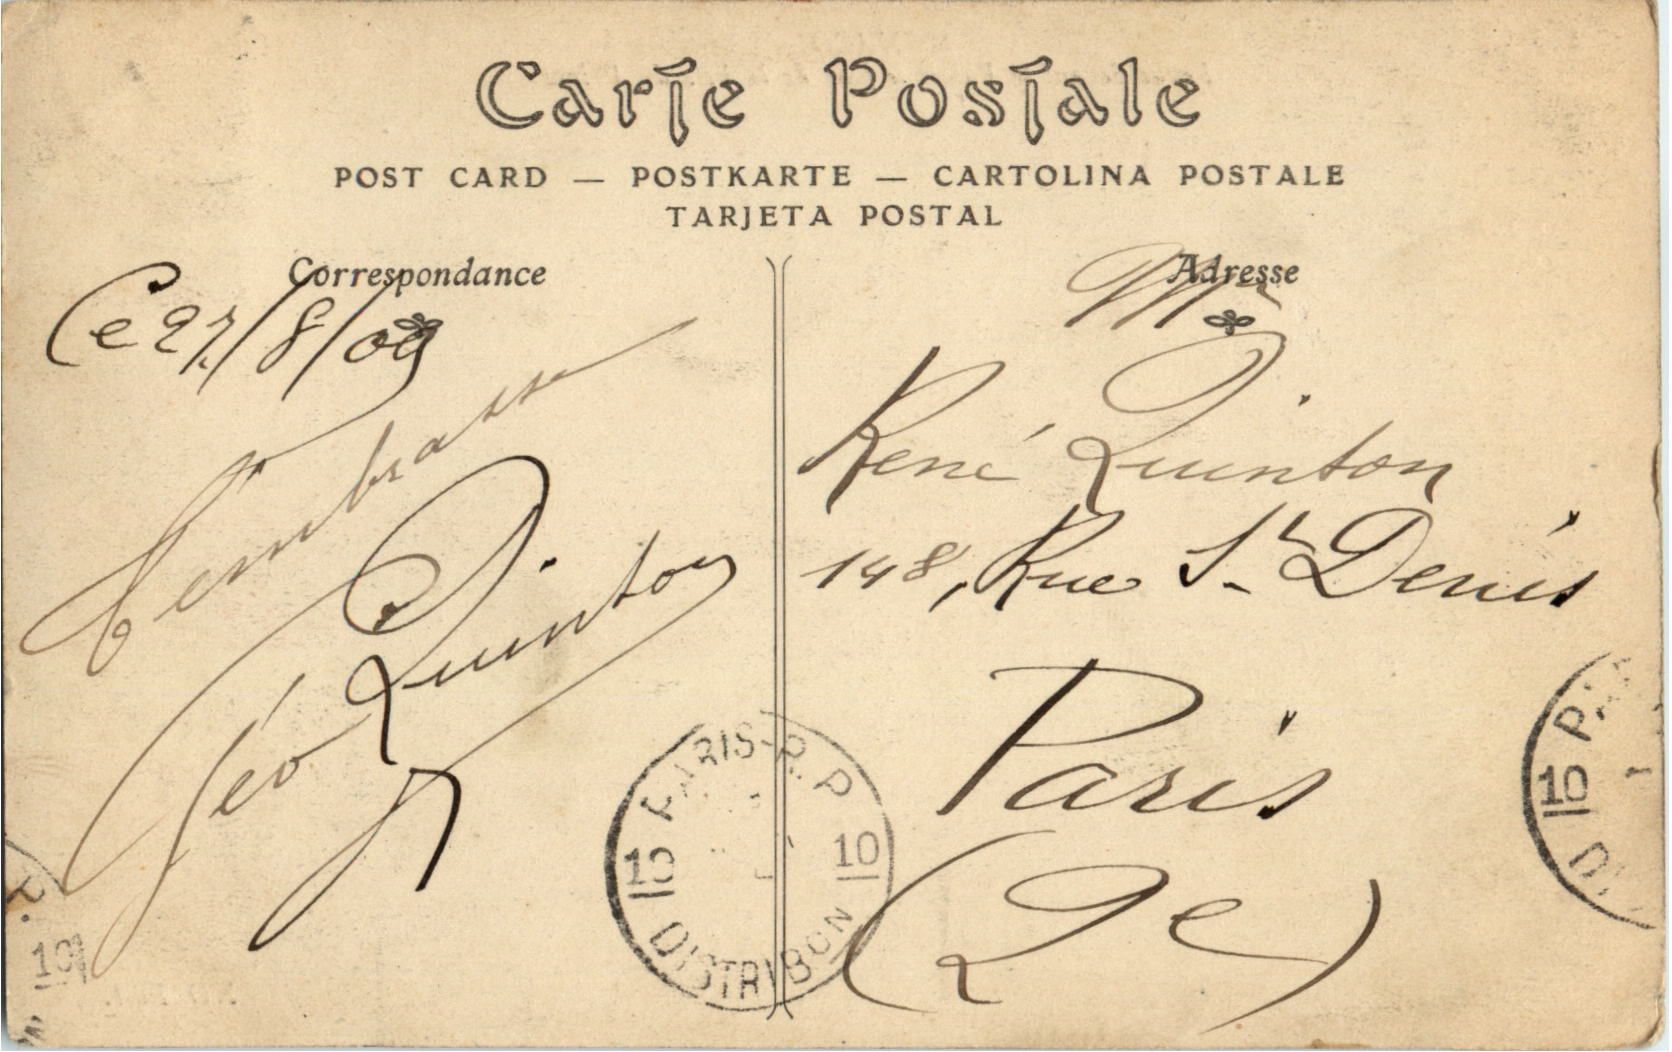 Carte Postale
POST CARD — POSTKARTE — CARTOLINA POSTALE
TARJETA POSTAL
Correspondance
Ce 27/8/09
T'embrasse
Géo Quinton
Adresse
Mr
René Quinton
148, Rue St Denis
Paris
(2e)
PARIS-R. P
10 10
DISTRIBON
10
10